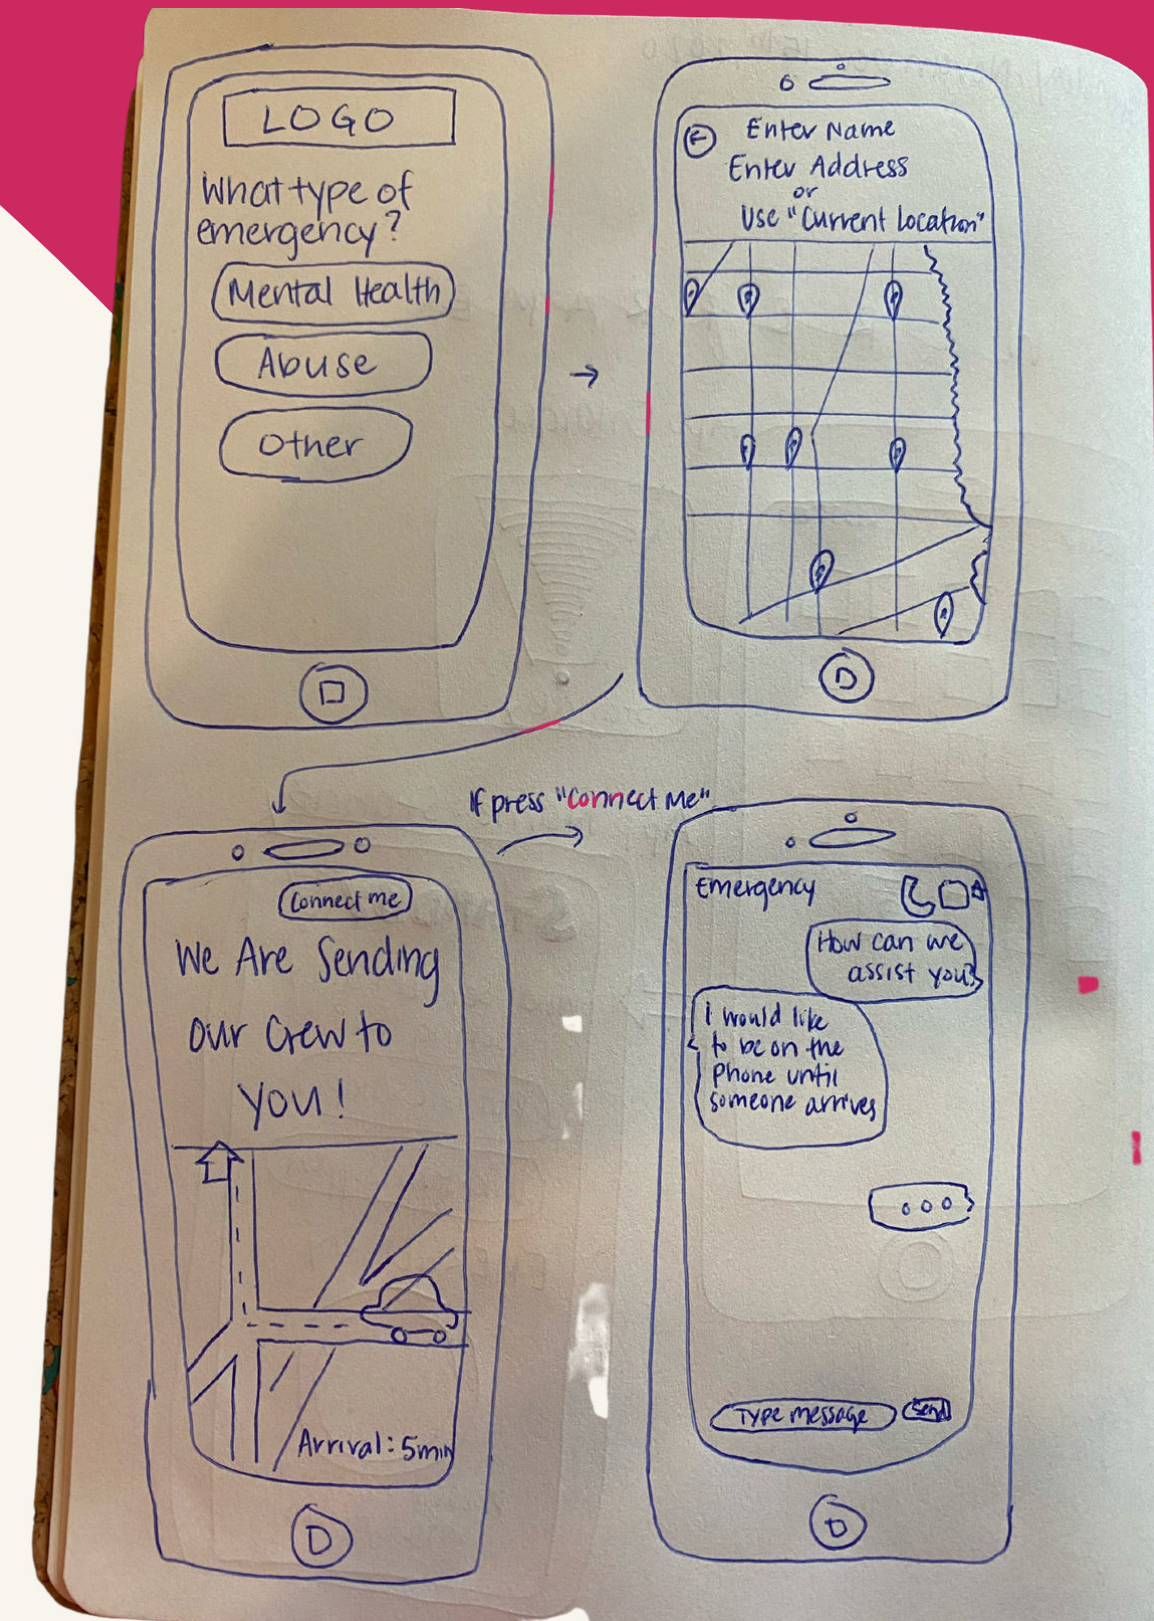 LOGO
What type of
emergency?
Mental Health
Abuse
Other
Enter Name
Enter Address
or
Use "Current Location"
If press "Connect Me"
Connect me
We Are Sending
our Crew to
you!
Arrival: 5min
Emergency
How can we
assist you?
I would like
to be on the
Phone until
someone arrives
Type message
Send